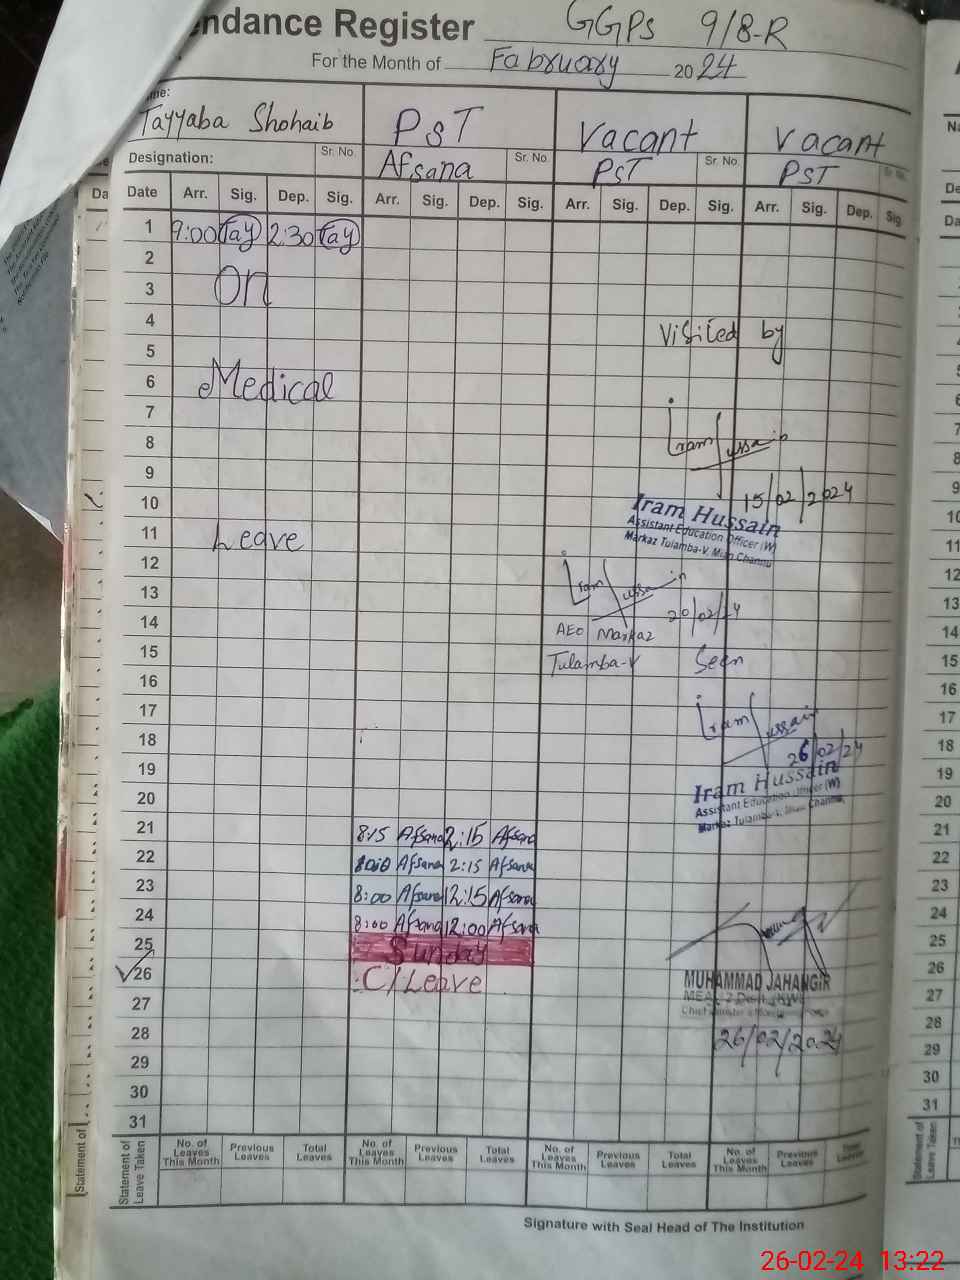 endance Register GGPs 9/8-R
For the Month of Fabruary 2024
me:
Tayyaba Shohaib PST Vacant Vacant
Designation: Sr. No. Afsana Sr. No. PST Sr. No. PST Sr. No.
Date Arr. Sig. Dep. Sig. Arr. Sig. Dep. Sig. Arr. Sig. Dep. Sig. Arr. Sig. Dep. Sig.
1 9:00 Tay 2:30 Tay
2
3 On
4 Visited by
5
6 Medical
7
8 Iram Hussain
9
10 15/02/2024
Iram Hussain
Assistant Education Officer (W)
Markaz Tulamba-V, Mian Channu
11 Leave
12
13 Iram Hussain
14 20/02/24
AEO Markaz
15 Tulamba-V Seen
16
17 Iram Hussain
18 26/02/24
19 Iram Hussain
Assistant Education Officer (W)
Markaz Tulamba-V, Mian Channu
20
21 8:15 Afsana 2:15 Afsana
22 Afsana 2:15 Afsana
23 8:00 Afsana 12:15 Afsana
24 8:00 Afsana 12:00 Afsana
25 Sunday
26 C/Leave MUHAMMAD JAHANGIR
27
28 26/02/2024
29
30
31
Statement of Leave Taken
No. of Leaves This Month Previous Leaves Total Leaves No. of Leaves This Month Previous Leaves Total Leaves No. of Leaves This Month Previous Leaves Total Leaves No. of Leaves This Month Previous Leaves Total Leaves
Signature with Seal Head of The Institution
26-02-24 13:22